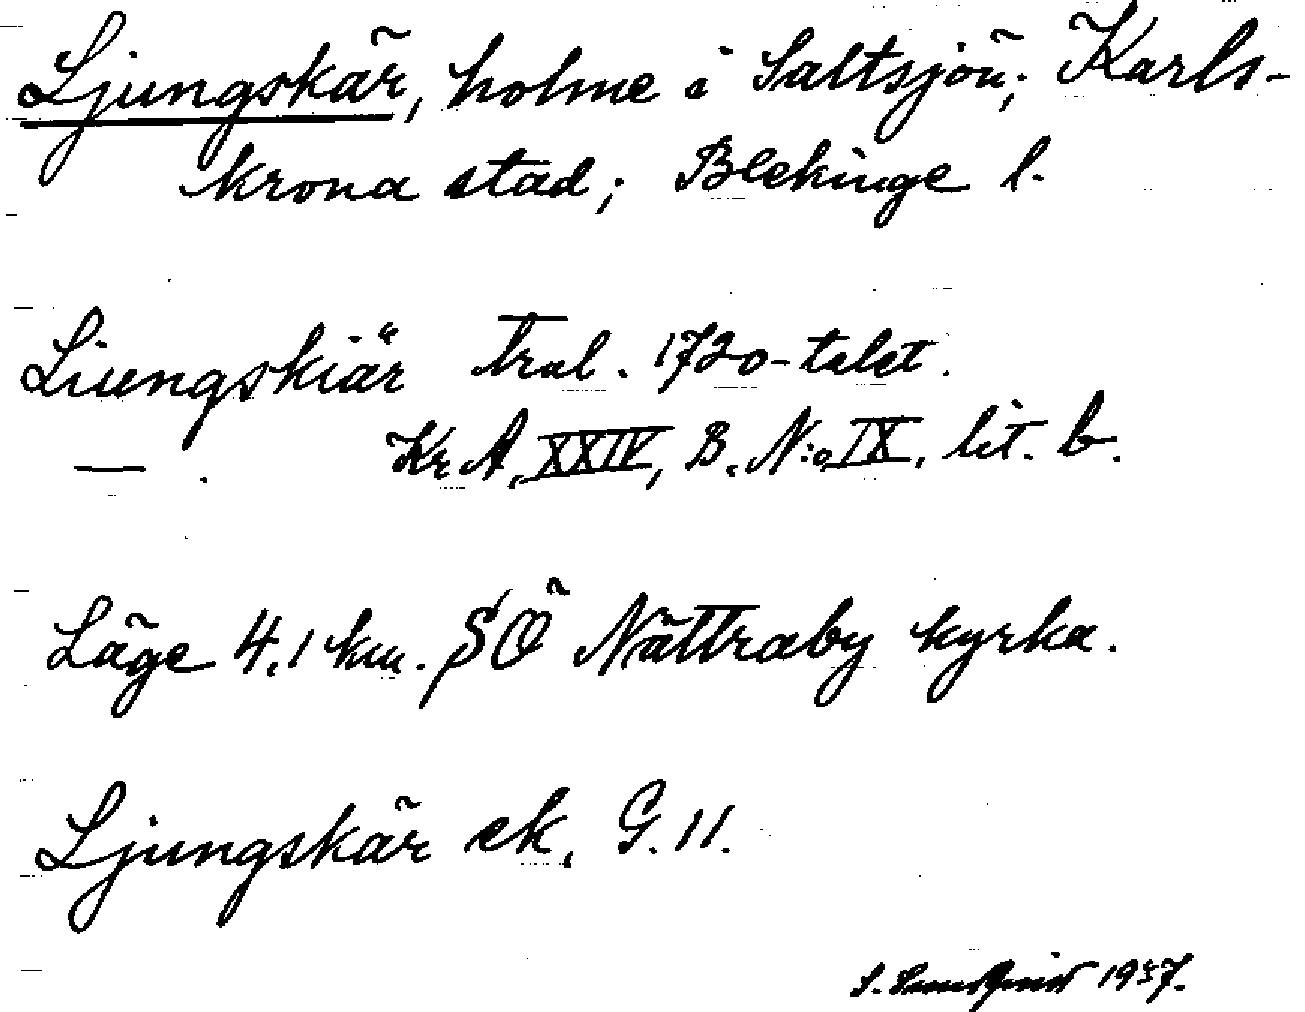 Ljungskär, holme i Saltsjön; Karls-
krona stad; Blekinge l.
Liungskiär Aral. 1720-talet.
— . Kr A, XXIV, B. N:o IX, lit. b.
Läge 4,1 km. SÖ Nättraby kyrka.
Ljungskär ek. G. 11.
S. 1937.